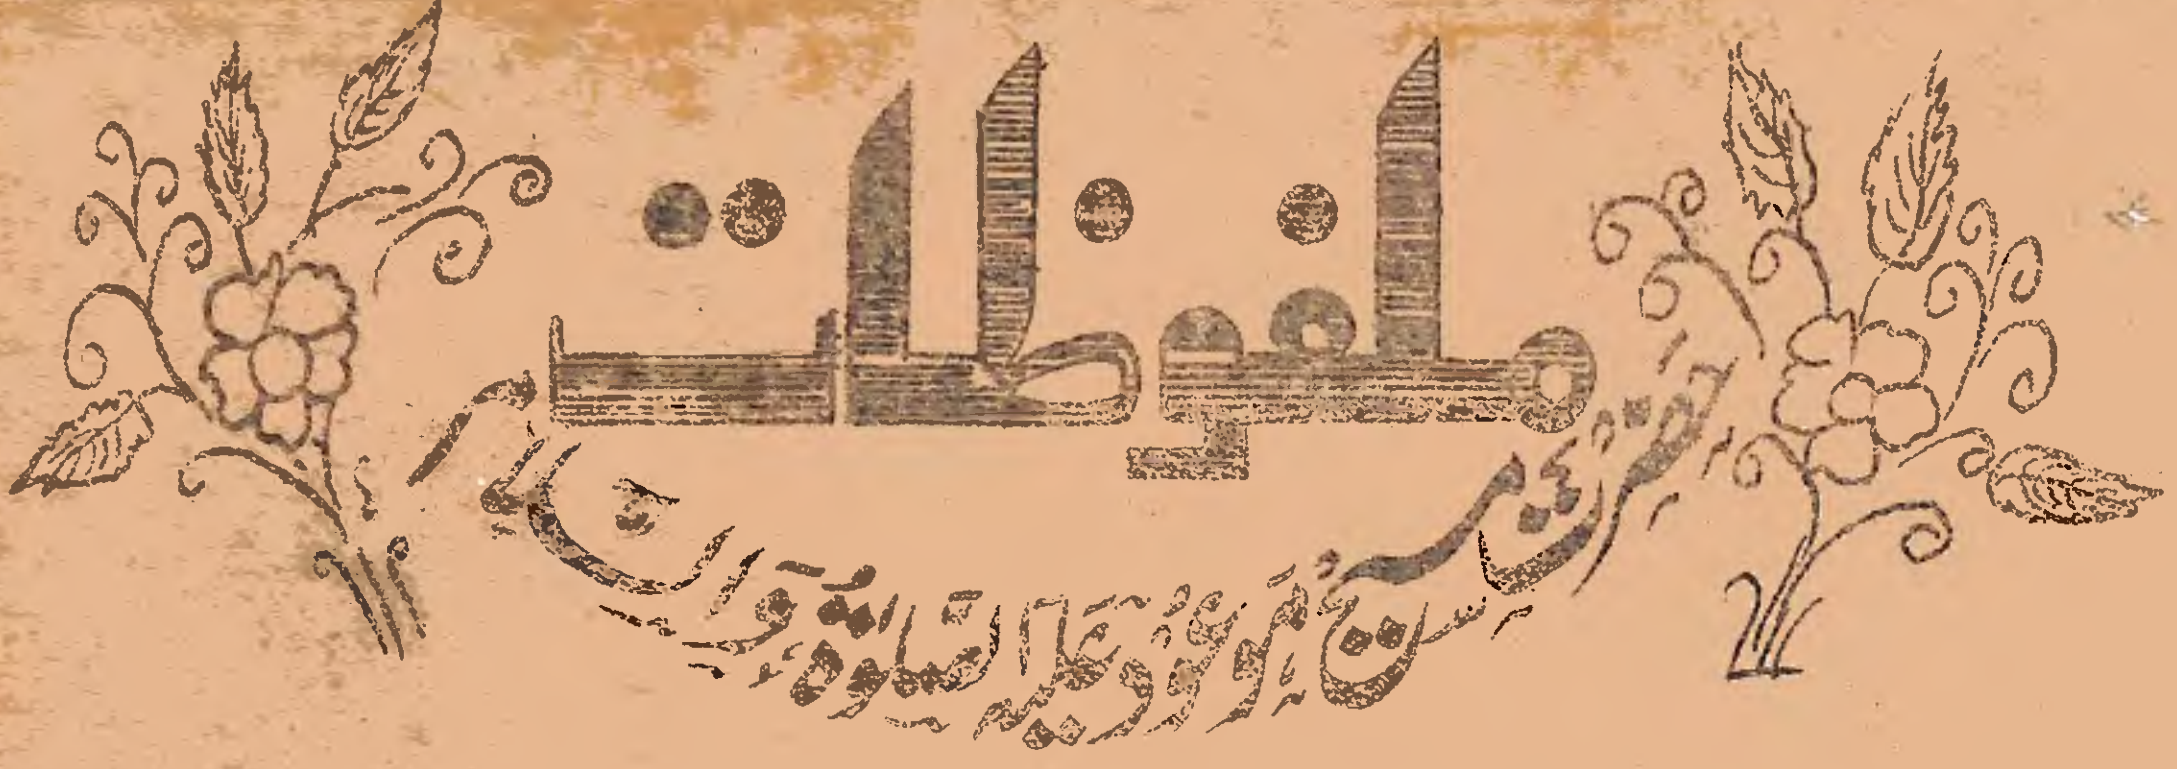 ملفوظات
حضرت مسیح موعود علیہ الصلوٰۃ والسلام